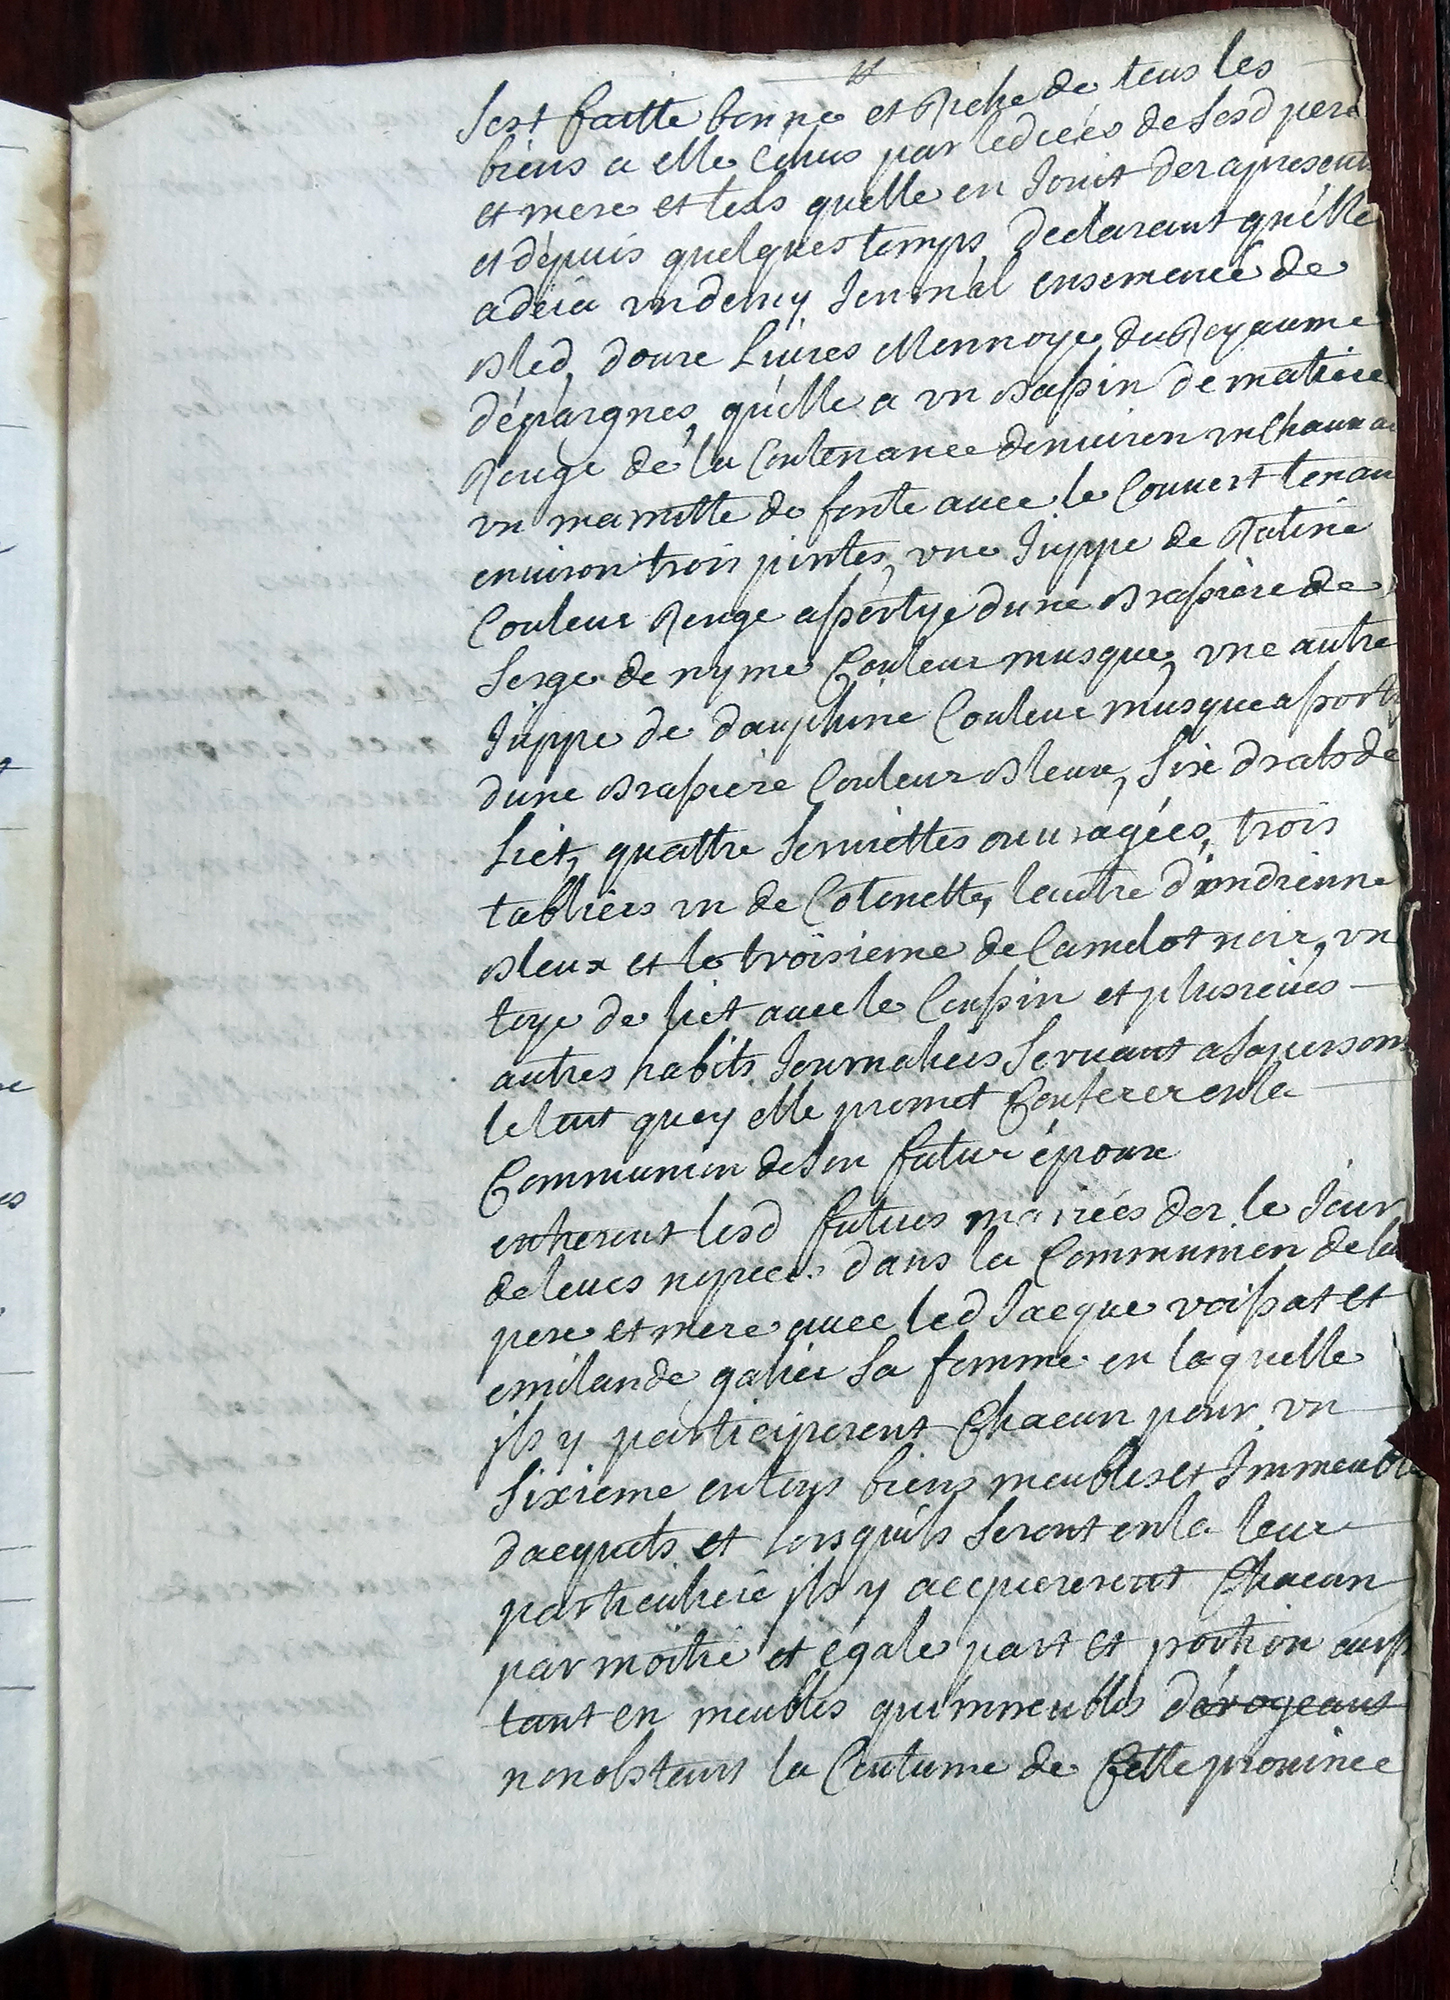 sest faitte bonne et Riche de tous les
biens a elle échus par ledcécs de sesd pere
et mere et tels quelle en Jouit der apresent
et dépuis quelques temps, declarant quélle
a déia un demy Journal ensemencé de
Bled, douxe Livres Monnoye du Royaume
dépargnes, quélle a vn Bassin de matiere
Rouge de la Contenance denuiron vn
vn marmitte de fonte auec le Couuert tenan
enuiron trois pintes, vne Juppe de Ratine
Couleur Rouge assortye dune Brassiere de
Serge de nyme Couleur musque, vne autre
Juppe de dauphine Couleur musque assorty
dune Brassiere Couleur Bleux, six drats de
Lict, quattre Seruiettes ouuragées, trois
tabliers vn de Cotonette, lautre dindienne
Bleux et le troisieme de Camelot noir, vn
toye de lict auec le Coussin et plusieurs
autres habits Journaliers Seruant a sa person
le tout quoy elle promet Conferer en la
Communion de son futur époux
entreront lesd futurs mariées der le Jour
de leurs nopces dans la Communion de le
pere et mere auec led Jacque voissat et
emilande galier Sa femme en laquelle
jls y participeront Chacun pour vn
Sixieme en tous biens meubles et Jmmeuble
dacquets et lorsquils Seront en la leur
particuliere jls y acquiereront Chacun
par moitié et égale part et portion auss
tant en meubles quimmeubles dérogeant
nonobstant la Coutume de Cette prouince